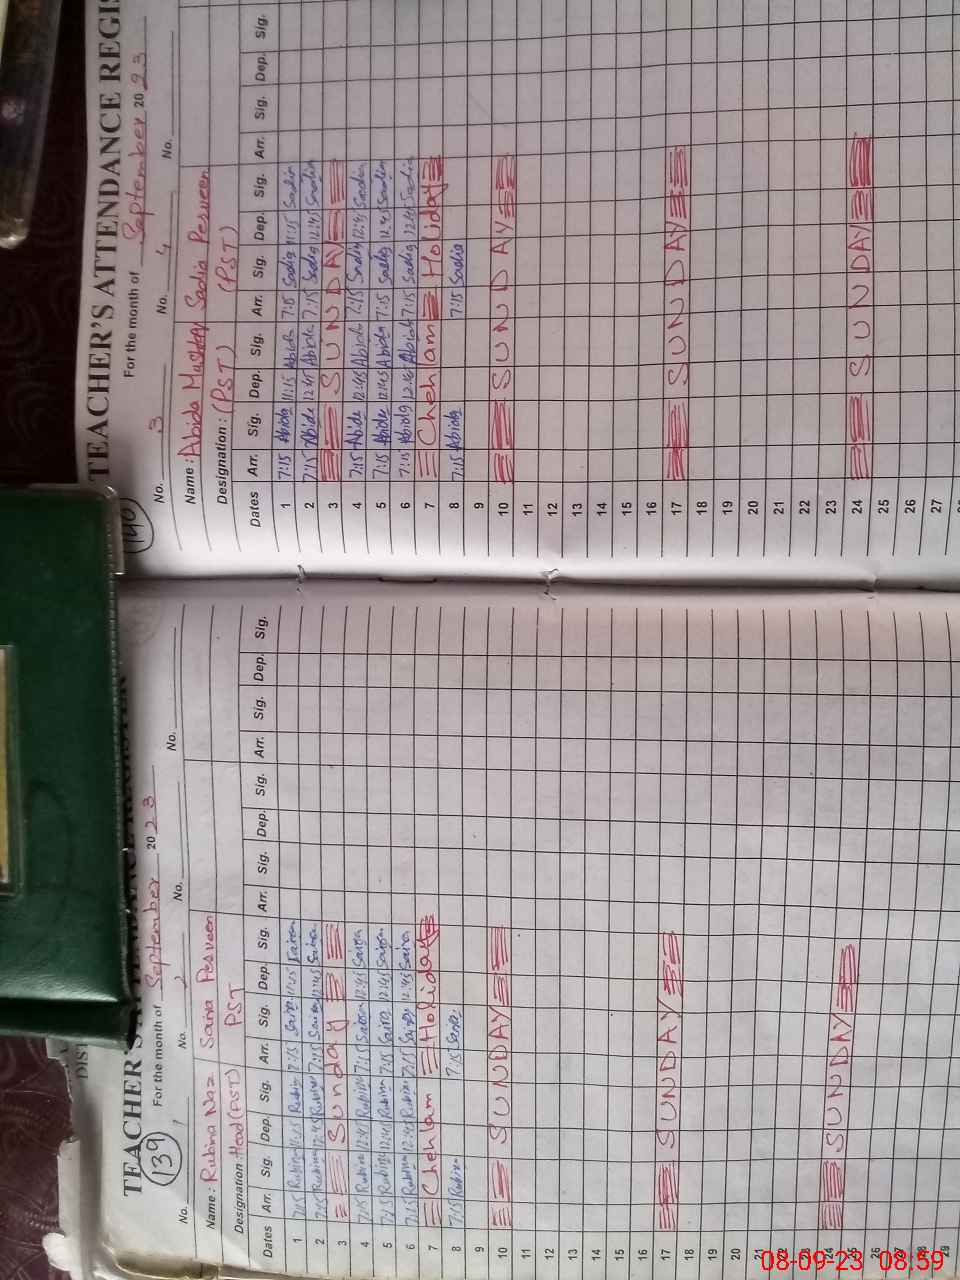 TEACHER'S ATTENDANCE REGIS
139
For the month of September 2023
No. 1 No. 2 No. No.
Name: Rubina Naz Saira Perveen
Designation: Head (PST) PST
Dates Arr. Sig. Dep. Sig. Arr. Sig. Dep. Sig. Arr. Sig. Dep. Sig. Arr. Sig. Dep. Sig.
1 7:15 Rubina 11:15 Rubina 7:15 Saira 11:15 Saira
2 7:15 Rubina 12:45 Rubina 7:15 Saira 12:45 Saira
3 Sunday
4 7:15 Rubina 12:45 Rubina 7:15 Saira 12:45 Saira
5 7:15 Rubina 12:45 Rubina 7:15 Saira 12:45 Saira
6 7:15 Rubina 12:45 Rubina 7:15 Saira 12:45 Saira
7 Chehlam Holiday
8 7:15 Rubina 7:15 Saira
9
10 SUNDAY
11
12
13
14
15
16
17 SUNDAY
18
19
20
21
22
23
24 SUNDAY
25
26
27
28
29
140
TEACHER'S ATTENDANCE REGIS
For the month of September 2023
No. 3 No. 4 No.
Name: Abida Mushtaq Sadia Perveen
Designation: (PST) (PST)
Dates Arr. Sig. Dep. Sig. Arr. Sig. Dep. Sig. Arr. Sig. Dep. Sig.
1 7:15 Abida 11:15 Abida 7:15 Sadia 11:15 Sadia
2 7:15 Abida 12:45 Abida 7:15 Sadia 12:45 Sadia
3 SUNDAY
4 7:15 Abida 12:45 Abida 7:15 Sadia 12:45 Sadia
5 7:15 Abida 12:45 Abida 7:15 Sadia 12:45 Sadia
6 7:15 Abida 12:45 Abida 7:15 Sadia 12:45 Sadia
7 Chehlam Holiday
8 7:15 Abida 7:15 Sadia
9
10 SUNDAY
11
12
13
14
15
16
17 SUNDAY
18
19
20
21
22
23
24 SUNDAY
25
26
27
08-09-23 08:59